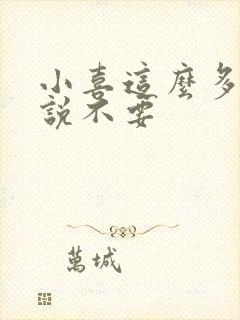 小喜這麼多
說不要
萬城